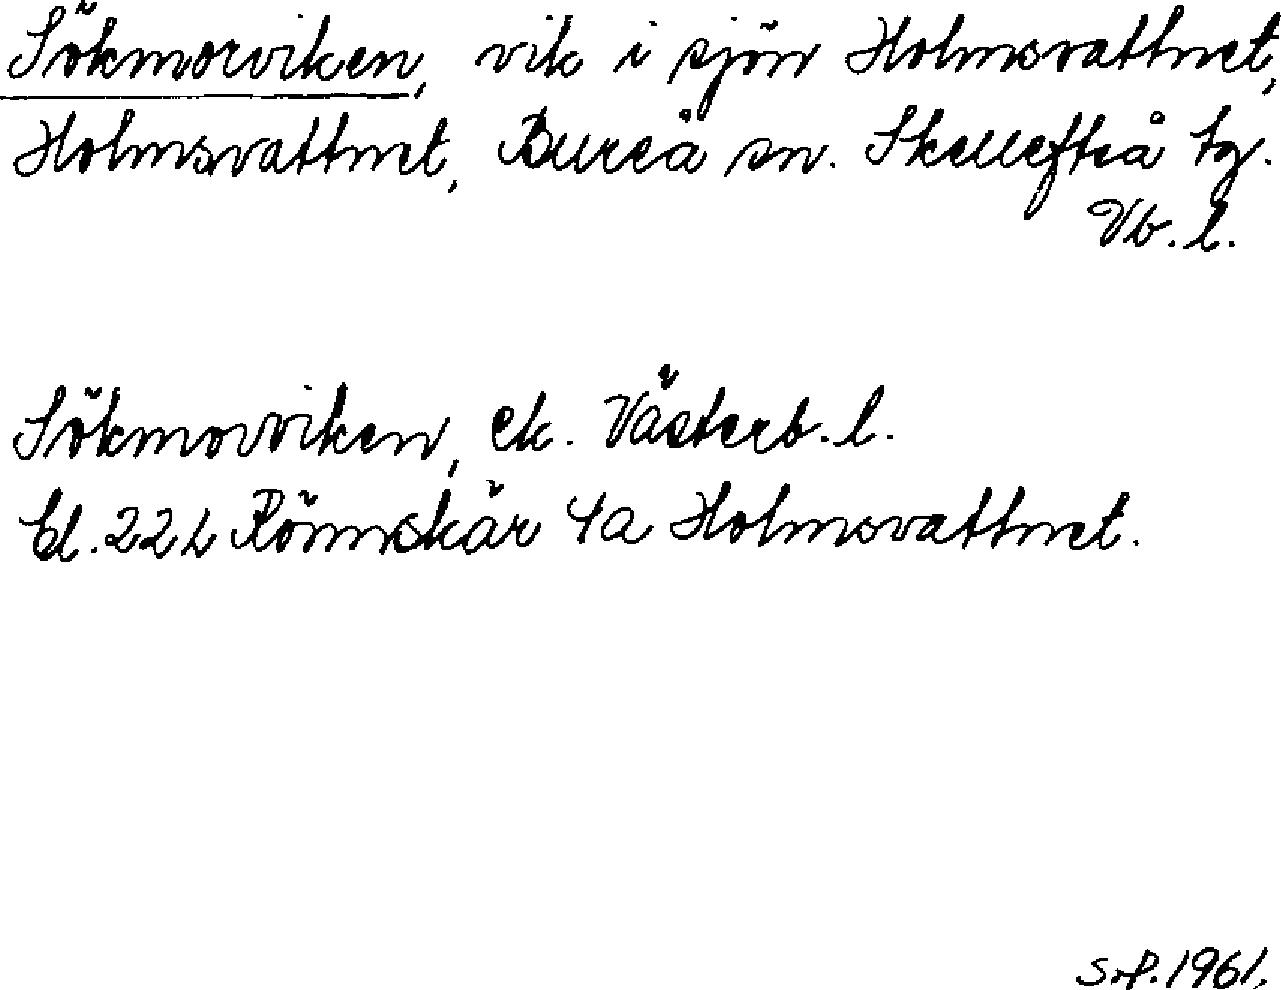 Sökmorviken, vik i sjön Holmsvattnet,
Holmsvattnet, Bureå sn. Skellefteå tg.
Vb. l.
Sökmorviken, ek. Västerb. l.
bl. 22L Rönnskär 4a Holmsvattnet.
1961.